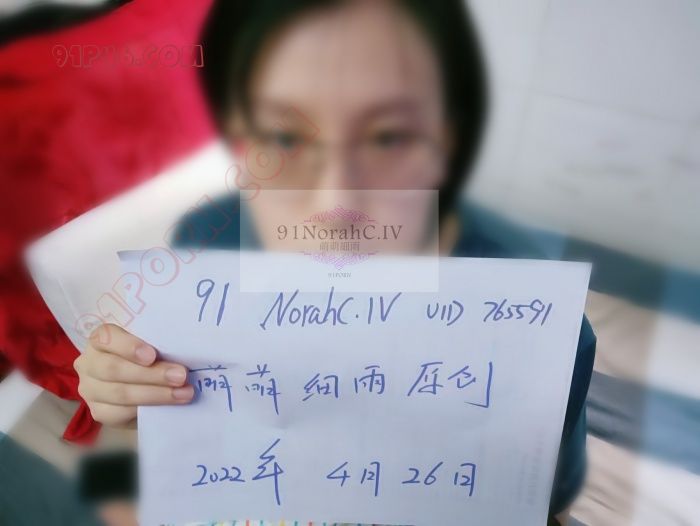 91PORN.COM
91PORN.COM
91NorahC.IV
萌萌細雨
91PORN
91 NorahC.IV UID 765591
萌萌细雨原创
2022年 4月 26日